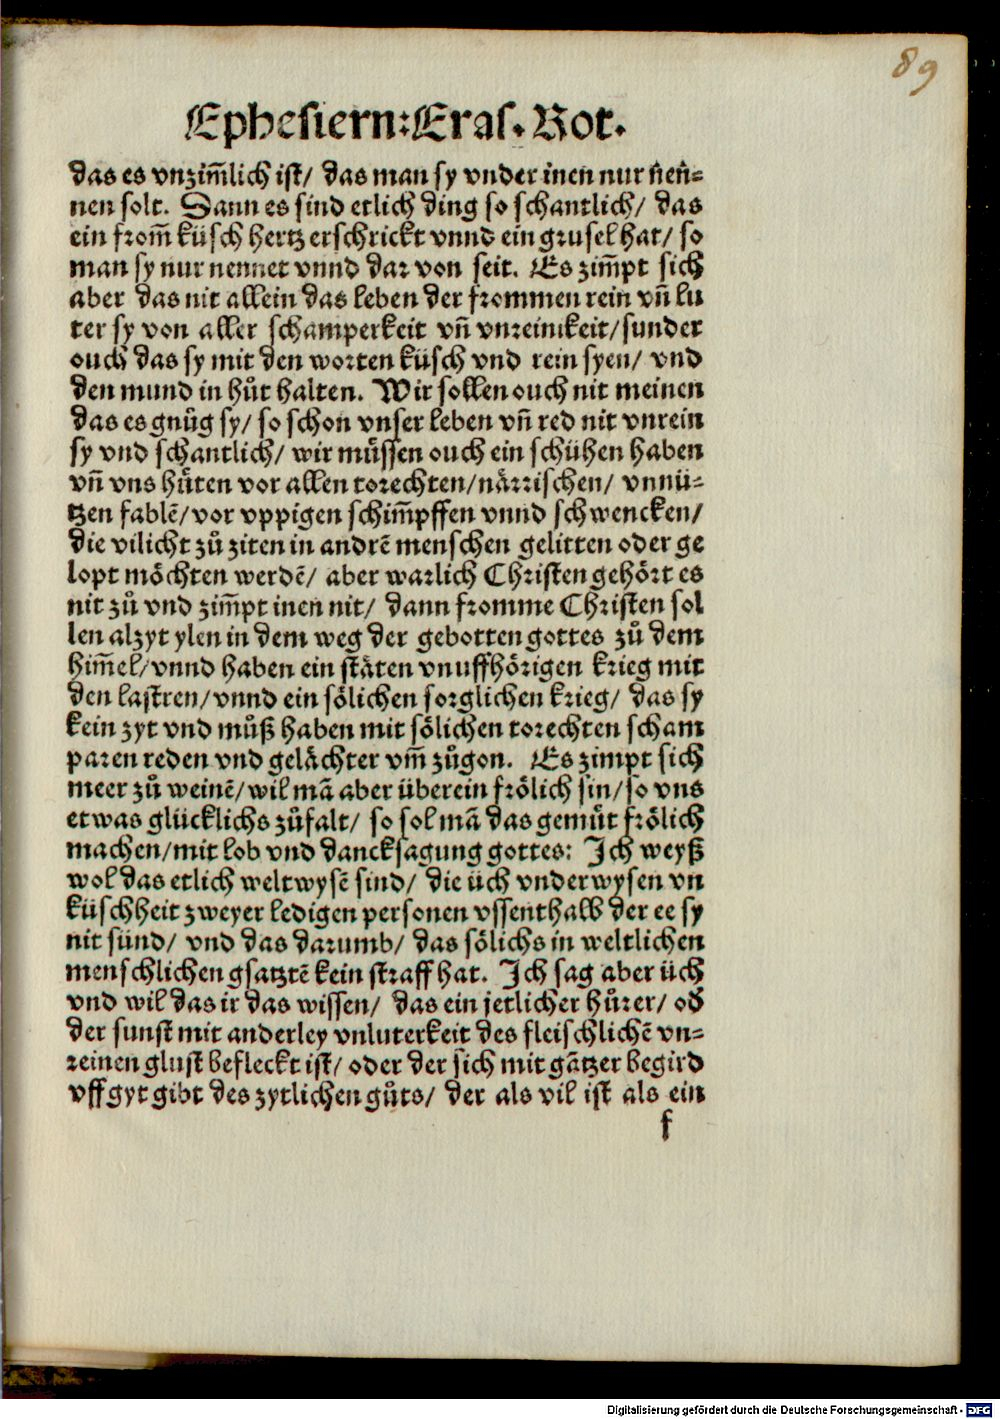 89
Ephesiern: Eras. Rot.
das es vnzim̄lich ist/ das man sy vnder inen nur nen̄-
nen solt. Dann es sind etlich ding so schantlich/ das
ein from̄ küsch hertz erschrickt vnnd ein grusel hat/ so
man sy nur nennet vnnd dar von seit. Es zim̄pt sich
aber das nit allein das leben der frommen rein vn̄ lu
ter sy von aller schamperkeit vn̄ vnreinikeit/ sunder
ouch das sy mit den worten küsch vnd rein syen/ vnd
den mund in hůt halten. Wir sollen ouch nit meinen
das es gnůg sy/ so schon vnser leben vn̄ red nit vnrein
sy vnd schantlich/ wir müssen ouch ein schühen haben
vn̄ vns hüten vor allen torechten/ närrischen/ vnnü-
tzen fablē/ vor vppigen schim̄pffen vnnd schwencken/
die vilicht zů ziten in andrē menschen gelitten oder ge
lopt möchten werdē/ aber warlich Christen gehört es
nit zů vnd zim̄pt inen nit/ dann fromme Christen sol
len alzyt ylen in dem weg der gebotten gottes zů dem
him̄el/ vnnd haben ein stäten vnuffhörigen krieg mit
den lastren/ vnnd ein sölichen sorglichen krieg/ das sy
kein zyt vnd můß haben mit sölichen torechten scham
paren reden vnd gelächter vm̄ zůgon. Es zimpt sich
meer zů weinē/ wil mā aber überein frölich sin/ so vns
etwas glücklichs zůfalt/ so sol mā das gemüt frölich
machen/ mit lob vnd dancksagung gottes: Ich weyß
wol das etlich weltwysē sind/ die üch vnderwysen vn
küschheit zweyer ledigen personen vssenthalb der ee sy
nit sünd/ vnd das darumb/ das sölichs in weltlichen
menschlichen gsatztē kein straff hat. Ich sag aber üch
vnd wil das ir das wissen/ das ein jetlicher hůrer/ od̕
der sunst mit anderley vnluterkeit des fleischlichē vn-
reinen glust befleckt ist/ oder der sich mit gātzer begird
vff gyt gibt des zytlichen gůts/ der als vil ist als ein
f
Digitalisierung gefördert durch die Deutsche Forschungsgemeinschaft - DFG